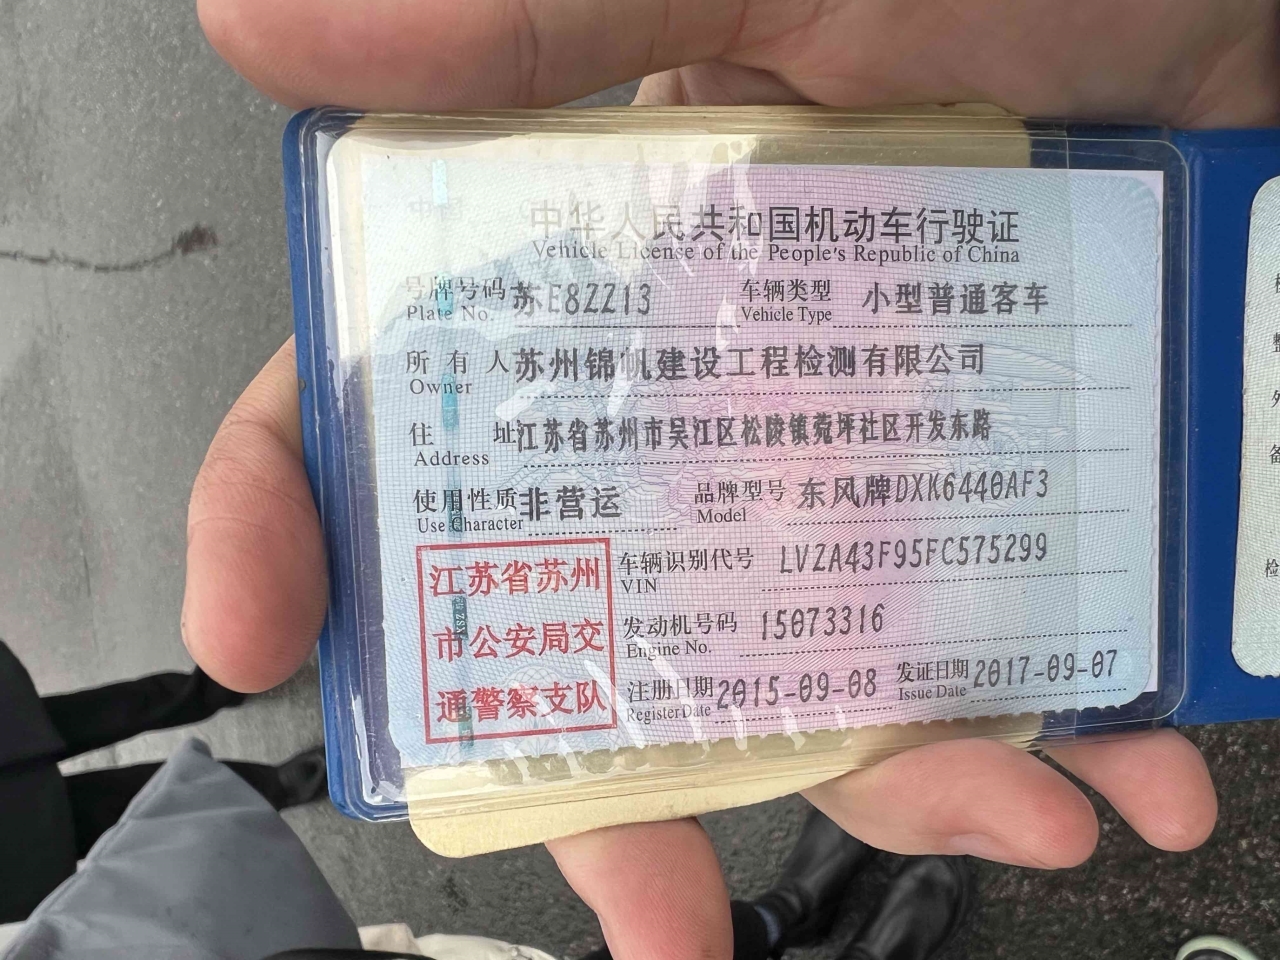 中华人民共和国机动车行驶证
Vehicle License of the People's Republic of China
号牌号码 苏E8ZZ13 车辆类型 小型普通客车
Plate No. Vehicle Type
所有人 苏州锦帆建设工程检测有限公司
Owner
住址 江苏省苏州市吴江区松陵镇菀坪社区开发东路
Address
使用性质 非营运 品牌型号 东风牌DXK6440AF3
Use Character Model
江苏省苏州
市公安局交
通警察支队
车辆识别代号 LVZA43F95FC575299
VIN
发动机号码 15073316
Engine No.
注册日期 2015-09-08 发证日期 2017-09-07
Register Date Issue Date